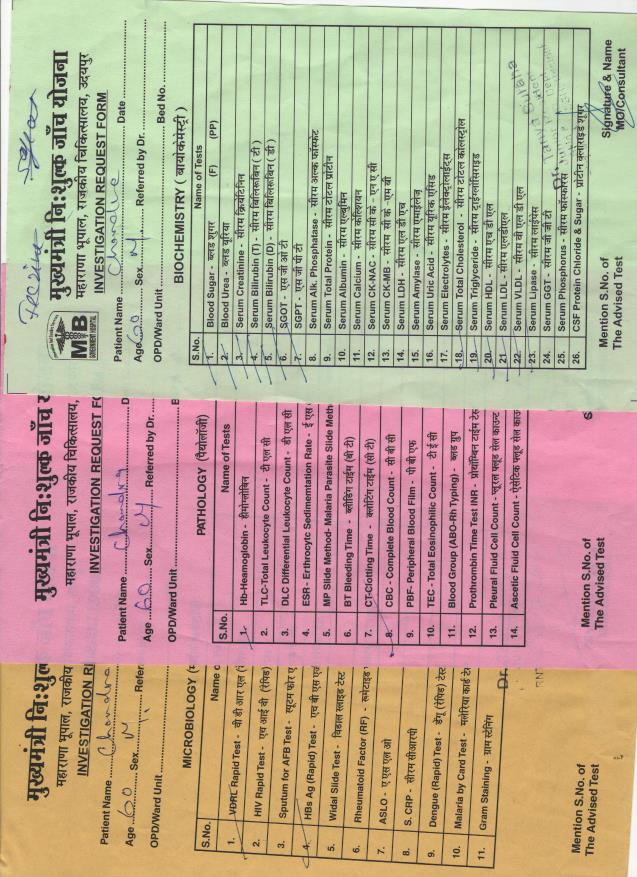 मुख्यमंत्री निःशुल्क जाँच योजना
महाराणा भूपाल, राजकीय चिकित्सालय, उदयपुर
INVESTIGATION REQUEST FORM
MB
GOVERNMENT HOSPITAL
Patient Name Chandra Date
Age 60 Sex M. Referred by Dr.
OPD/Ward Unit Bed No.
BIOCHEMISTRY ( बायोकेमेस्ट्री )
S.No. Name of Tests
1. Blood Sugar - ब्लड शूगर (F) (PP)
2. Blood Urea - ब्लड यूरिया
3. Serum Creatinine - सीरम क्रियेटिनिन
4. Serum Bilirubin (T) - सीरम बिलिरूबिन ( टी )
5. Serum Bilirubin (D) - सीरम बिलिरूबिन ( डी )
6. SGOT - एस जी ओ टी
7. SGPT - एस जी पी टी
8. Serum Alk. Phosphatase - सीरम अल्क फॉस्फेट
9. Serum Total Protein - सीरम टोटल प्रोटीन
10. Serum Albumin - सीरम एल्बुमिन
11. Serum Calcium - सीरम केल्शियम
12. Serum CK-NAC - सीरम सी के - एन ए सी
13. Serum CK-MB - सीरम सी के -एम बी
14. Serum LDH - सीरम एल डी एच
15. Serum Amylase - सीरम एमाईलेज
16. Serum Uric Acid - सीरम यूरिक एसिड
17. Serum Electrolytes - सीरम ईलक्ट्रोलाईट्स
18. Serum Total Cholesterol - सीरम टोटल कोलस्ट्रोल
19. Serum Triglyceride - सीरम ट्राईग्लीसिराइड
20. Serum HDL - सीरम एच डी एल
21. Serum LDL - सीरम एलडीएल
22. Serum VLDL - सीरम वी एल डी एल
23. Serum Lipase - सीरम लाईपेस
24. Serum GGT - सीरम जी जी टी
25. Serum Phosphorus - सीरम फॉस्फोरस
26. CSF Protein Chloride & Sugar - प्रोटीन क्लोराइड शूगर
Mention S.No. of
The Advised Test
Signature & Name
MO/Consultant
मुख्यमंत्री निःशुल्क जाँच य
महाराणा भूपाल, राजकीय चिकित्सालय,
INVESTIGATION REQUEST FO
Patient Name Chandra D
Age 60 Sex M Referred by Dr.
OPD/Ward Unit B
PATHOLOGY (पैथोलॉजी)
S.No. Name of Tests
1. Hb-Heamoglobin - हीमोग्लोबिन
2. TLC-Total Leukocyte Count - टी एल सी
3. DLC Differential Leukocyte Count - डी एल सी
4. ESR - Erthrocytc Sedimentation Rate - ई एस
5. MP Slide Method- Malaria Parasite Slide Meth
6. BT Bleeding Time - ब्लीडिंग टाईम (बी टी)
7. CT-Clotting Time - क्लोटिंग टाईम (सी टी)
8. CBC - Complete Blood Count - सी बी सी
9. PBF- Peripheral Blood Film - पी बी एफ
10. TEC - Total Eosinophilic Count - टी ई सी
11. Blood Group (ABO-Rh Typing) - ब्लड ग्रुप
12. Prothrombin Time Test INR - प्रोथोम्बिन टाईम टेस्
13. Pleural Fluid Cell Count - प्लूरल फ्लूड सेल काउन्ट
14. Ascetic Fluid Cell Count - ऐसेटिक फ्लूड सेल काउ
Mention S.No. of
The Advised Test
S
मुख्यमंत्री निःशु
महाराणा भूपाल, राजकीय
INVESTIGATION RE
Patient Name Chandra
Age 60 Sex M. Refer
OPD/Ward Unit
MICROBIOLOGY (
S.No. Name o
1. VDRL Rapid Test - वी डी आर एल (
2. HIV Rapid Test - एच आई वी (रेपिड)
3. Sputum for AFB Test - स्पूटम फोर ए
4. HBs Ag (Rapid) Test - एच बी एस एज
5. Widal Slide Test - विडाल स्लाइड टेस्ट
6. Rheumatoid Factor (RF) - रूमेटाइड
7. ASLO - ए एस एल ओ
8. S. CRP - सीरम सीआरपी
9. Dengue (Rapid) Test - डेंगू (रेपिड) टेस्
10. Malaria by Card Test - मलेरिया कार्ड टे
11. Gram Staining - ग्राम स्टेनिंग
Mention S.No. of
The Advised Test
Dr.
RNT